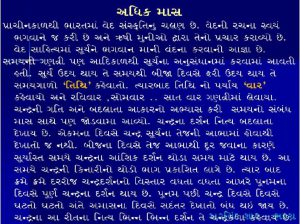 અધિક માસ
પ્રાચીનકાળથી ભારતમાં વેદ સંસ્કૃતિનું ચલણ છે. વેદની રચના સ્વયં
ભગવાને જ કરી છે અને ઋષિ મુનીઓ દ્વારા તેનો પ્રચાર કરાવ્યો છે.
વેદ સાહિત્યમાં સૂર્યને ભગવાન માની વંદના કરવાની આજ્ઞા છે.
સમયની ગણની પણ આદિકાળથી સૂર્યના અનુસંધાનમાં કરવામાં આવતી
હતી. સૂર્ય ઉદય થાય તે સમયથી બીજા દિવસે ફરી ઉદય થાય તે
સમયગાળો 'તિથિ' કહેવાતો. ત્યારબાદ તિથિ નો પર્યાય 'વાર'
કહેવાયો અને રવિવાર , સોમવાર .. સાત વાર ગણનામાં લેવાયા.
ચન્દ્રની ગતિ અને બદલાતા આકારનો અભ્યાસ કરી સમયનો સંબંધ
માસ સાથે પણ જોડવામાં આવ્યો. ચન્દ્રના દર્શન નિત્ય બદલાતા
દેખાય છે. એકમના દિવસે ચન્દ્ર સૂર્યના તેજની આભામાં હોવાથી
દેખાતો જ નથી. બીજના દિવસે તેજ આભાથી દૂર જવાના કારણે
સૂર્યાસ્ત સમયે ચન્દ્રના આંશિક દર્શન થોડા સમય માટે થાય છે. આ
સમયે ચન્દ્રની કિનારીનો થોડો ભાગ પ્રકાશિત લાગે છે. ત્યાર બાદ
ક્રમે ક્રમે દરરોજ ચન્દ્રદર્શનનો વિસ્તાર વધતા વધતા આખરે પૂનમના
દિવસે પૂર્ણ ચન્દ્રના દર્શન થાય છે. પૂનમ પછી ચન્દ્ર દિવસે દિવસે
ઘટતો ઘટતો અંતે અમાસના દિવસે સદંતર દેખાતો બંધ થઈ જાય છે.
ચન્દ્રના આ રીતના નિત્ય ભિન્ન ભિન્ન દર્શન તે